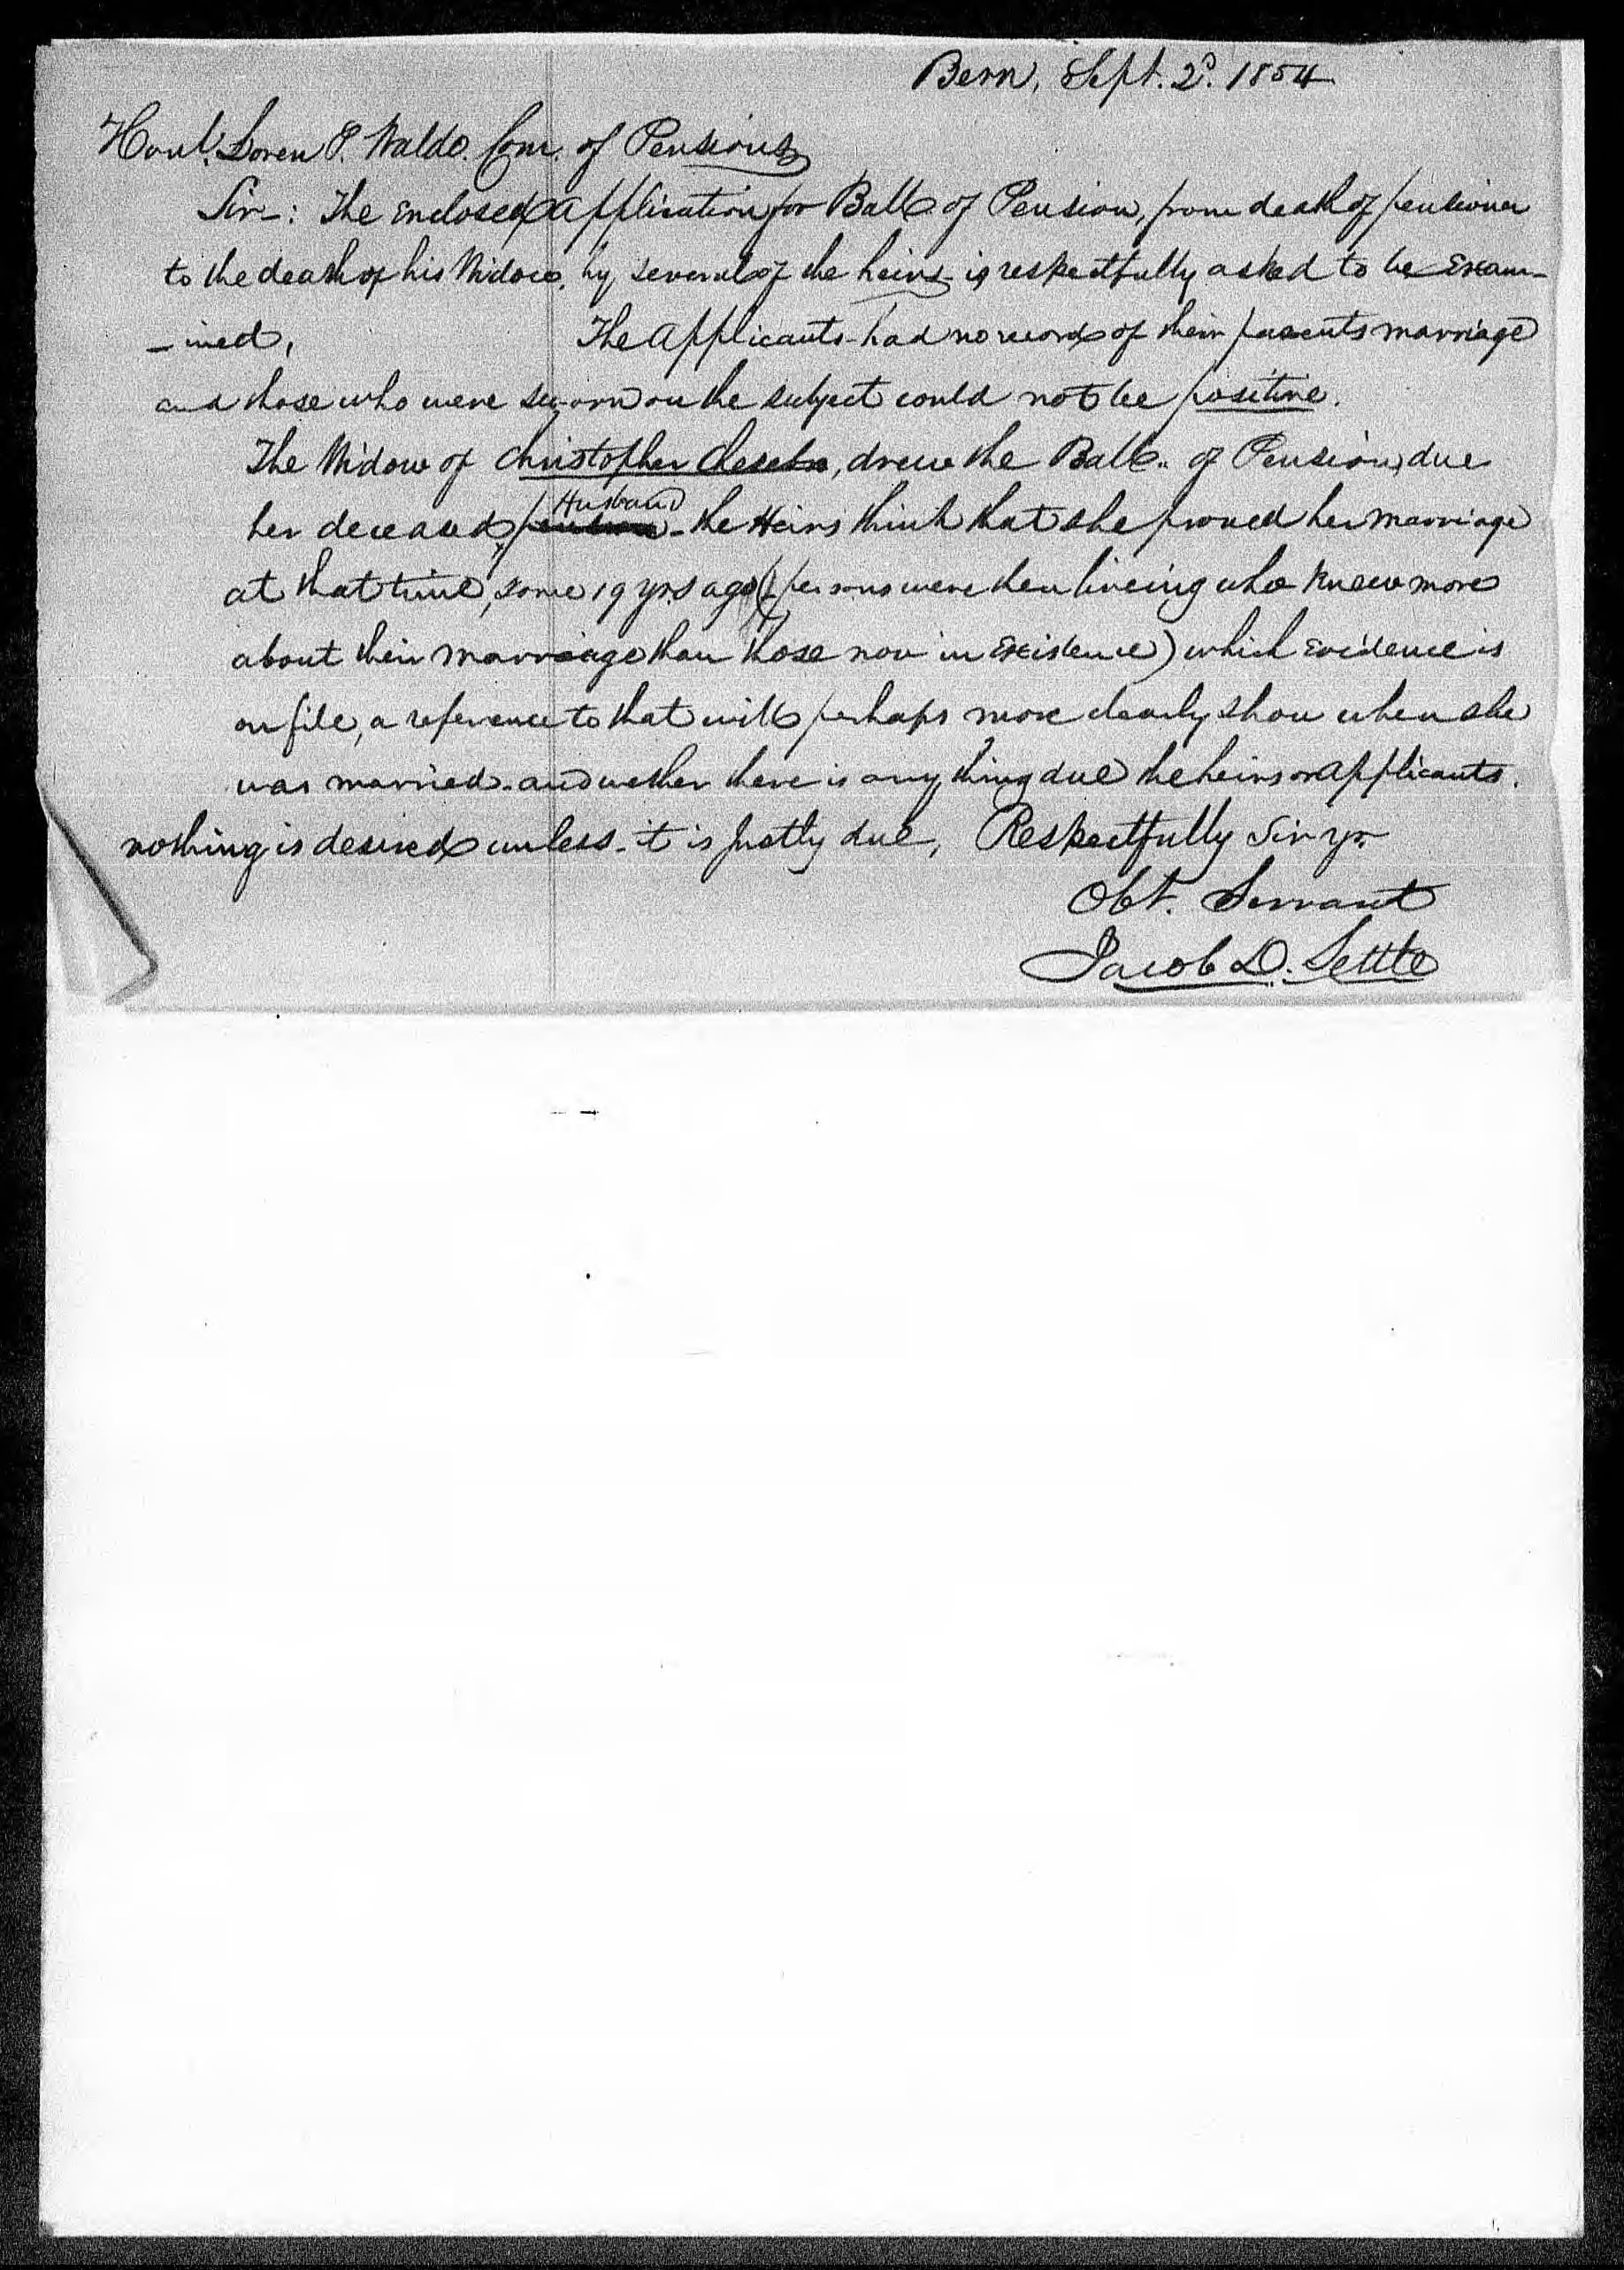 Bern, Sept. 2d. 1854
Honl. Loren P. Waldo. Com. of Pensions
Sir: The enclosed application for Ball of Pension, from death of pensioner
to the death of his Widow, by several of the heirs is respectfully asked to be Exam-
-ined, The Applicants had no record of their parents marriage
and those who were sworn on the subject could not be positive.
The Widow of Christopher, drew the Ball. of Pension, due
Husband
her deceased - the Heirs think that she proved her marriage
at that time, some 19 yrs ago (persons were then liveing who knew more
about their marriage than those now in Existence) which Evidence is
on file, a reference to that will perhaps more clearly show when she
was married. and wether there is any thing due the heirs or applicants.
nothing is desired unless it is justly due, Respectfully Sir yr.
Obt. Servant
Jacob D. Settle